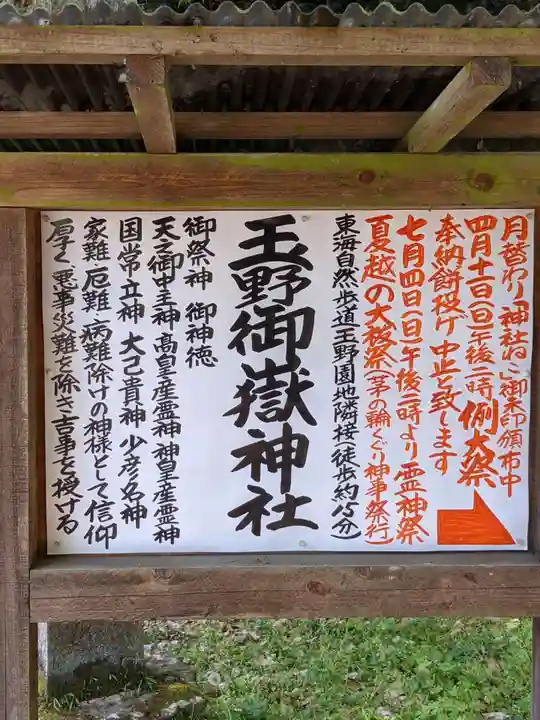 月替わり「神社ねこ」御朱印頒布中
四月十一日(日)午後二時 例大祭
奉納餅投げ 中止と致します
七月四日(日)午後二時より 霊神祭
夏越の大祓祭(茅の輪くぐり神事祭行)
東海自然歩道(玉野園地隣接・徒歩約15分)
玉野御嶽神社
御祭神 御神徳
天之御中主神 高皇産霊神 神皇産霊神
国常立神 大己貴神 少彦名神
家難・厄難・病難除けの神様として信仰
厚く 悪事災難を除き吉事を授ける